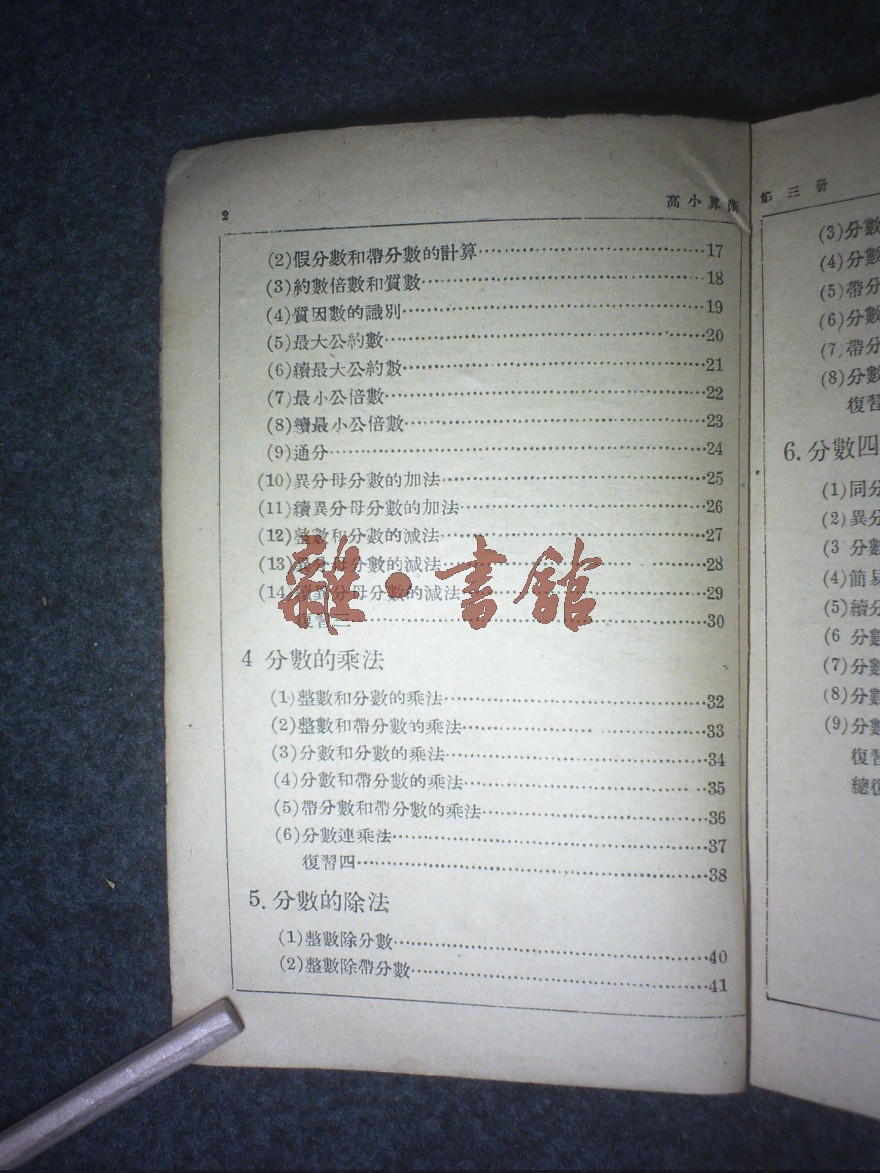 2
高小算術
(2)假分數和帶分數的計算……17
(3)約數倍數和質數……18
(4)質因數的識別……19
(5)最大公約數……20
(6)續最大公約數……21
(7)最小公倍數……22
(8)續最小公倍數……23
(9)通分……24
(10)異分母分數的加法……25
(11)續異分母分數的加法……26
(12)整數和分數的減法……27
(13)異分母分數的減法……28
(14)續異分母分數的減法……29
復習三……30
4 分數的乘法
(1)整數和分數的乘法……32
(2)整數和帶分數的乘法……33
(3)分數和分數的乘法……34
(4)分數和帶分數的乘法……35
(5)帶分數和帶分數的乘法……36
(6)分數連乘法……37
復習四……38
5.分數的除法
(1)整數除分數……40
(2)整數除帶分數……41
雜·書館
第三册
(3)分數
(4)分數
(5)帶分
(6)分數
(7)帶分
(8)分數
復習
6.分數四
(1)同分
(2)異分
(3 分數
(4)簡易
(5)續分
(6 分數
(7)分數
(8)分數
(9)分數
復習
總復